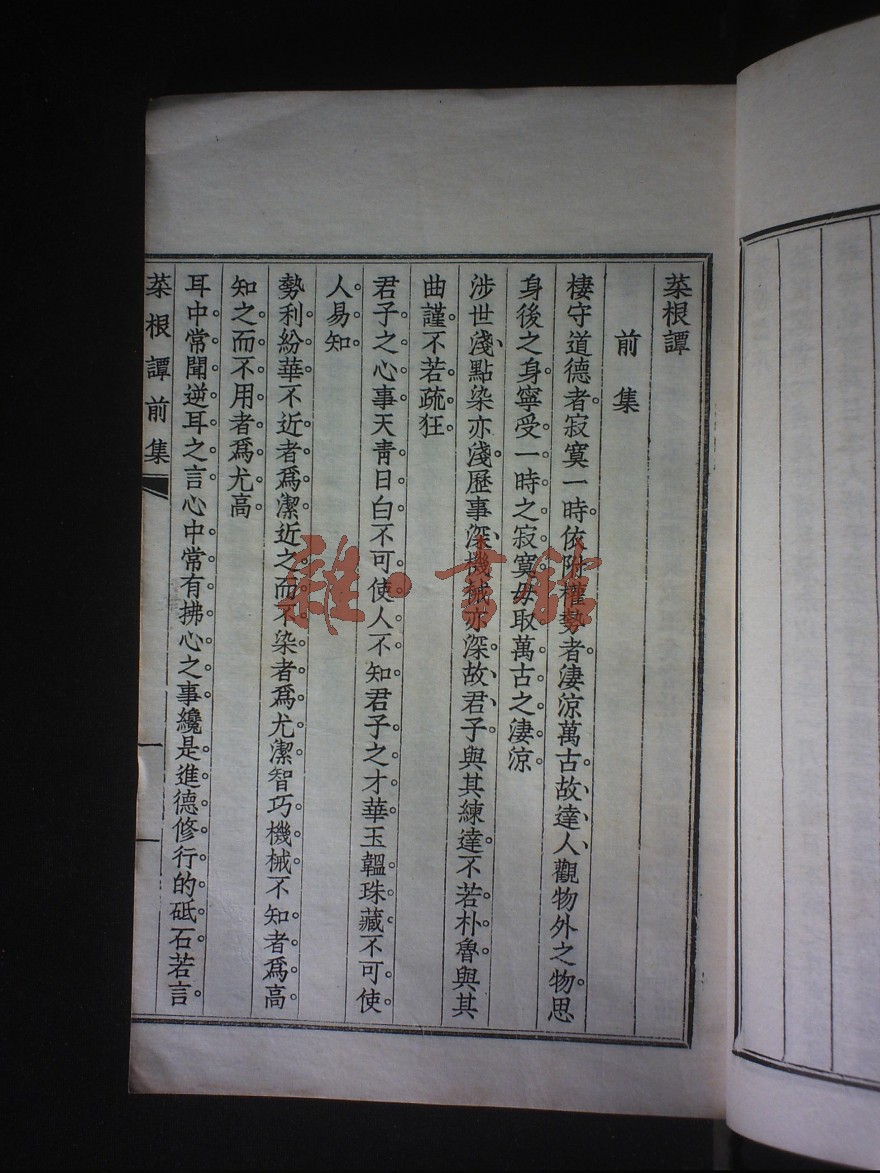 菜根譚
前集
棲守道德者寂寞一時依附權勢者淒涼萬古故達人觀物外之物思
身後之身寧受一時之寂寞毋取萬古之淒涼
涉世淺點染亦淺歷事深機械亦深故君子與其練達不若朴魯與其
曲謹不若疏狂
君子之心事天青日白不可使人不知君子之才華玉韞珠藏不可使
人易知
勢利紛華不近者爲潔近之而不染者爲尤潔智巧機械不知者爲高
知之而不用者爲尤高
耳中常聞逆耳之言心中常有拂心之事纔是進德修行的砥石若言
菜根譚前集
一
雜·書館